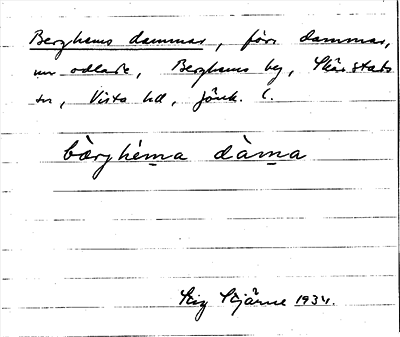 Berghems dammar, förr dammar,
nu odlade, Berghems by, Skärstads
sn, Vista hd, Jönk. l.
bàrghèma dàma
Stig Stjärne 1934.